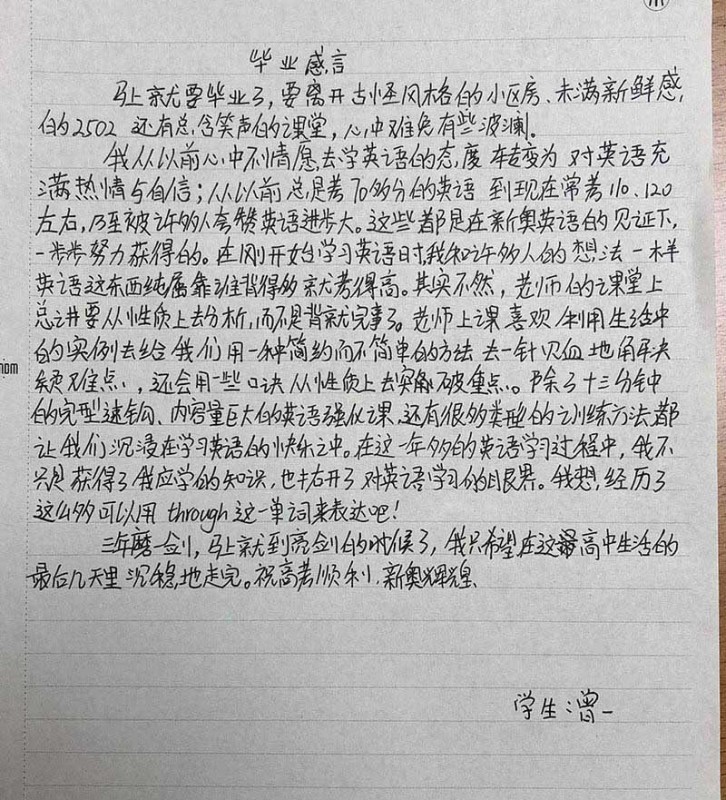 毕业感言
马上就要毕业了，要离开古怪风格的小区房、未满新鲜感
的2502 还有总含笑声的课堂，心中难免有些波澜。
我从以前心中不情愿去学英语的态度 转变为 对英语充
满热情与自信；从以前总是考70多分的英语 到现在常考110、120
左右，乃至被许多人夸赞英语进步大。这些都是在新奥英语的见证下，
一步步努力获得的。在刚开始学习英语时，我和许多人的想法一样
英语这东西纯属靠谁背得多就考得高。其实不然，老师的课堂上
总讲要从性质上去分析，而不是背就完事了。老师上课喜欢利用生活中
的实例去给我们用一种简约而不简单的方法去一针见血地解决
疑难点，还会用一些口诀从性质上去突破重点。除了十三分钟
的完型速钩、内容量巨大的英语强化课，还有很多类型的训练方法都
让我们沉浸在学习英语的快乐之中。在这一年多的英语学习过程中，我不
只是获得了我应学的知识，也拓开了对英语学习的眼界。我想，经历了
这么多可以用 through 这一单词来表达吧！
三年磨一剑，马上就到亮剑的时候了，我只希望在这最高中生活的
最后几天里沉稳地走完。祝高考顺利，新奥辉煌
学生：曾一